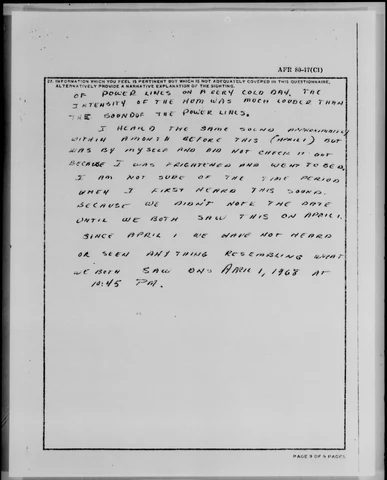 AFR 80-17(C1)
27. INFORMATION WHICH YOU FEEL IS PERTINENT BUT WHICH IS NOT ADEQUATELY COVERED IN THIS QUESTIONNAIRE.
ALTERNATIVELY PROVIDE A NARRATIVE EXPLANATION OF THE SIGHTING.
OF POWER LINES ON A VERY COLD DAY. THE
INTENSITY OF THE HUM WAS MUCH LOUDER THAN
THE SOUND OF THE POWER LINES.
I HEARD THE SAME SOUND APPROXIMATELY
WITHIN A MONTH BEFORE THIS (APRIL 1) BUT
WAS BY MYSELF AND DID NOT CHECK IT OUT
BECAUSE I WAS FRIGHTENED AND WENT TO BED.
I AM NOT SURE OF THE TIME PERIOD
WHEN I FIRST HEARD THIS SOUND.
BECAUSE WE DIDN'T NOTE THE DATE
UNTIL WE BOTH SAW THIS ON APRIL 1.
SINCE APRIL 1 WE HAVE NOT HEARD
OR SEEN ANYTHING RESEMBLING WHAT
WE BOTH SAW ON APRIL 1, 1968 AT
10:45 PM.
PAGE 9 OF 9 PAGES